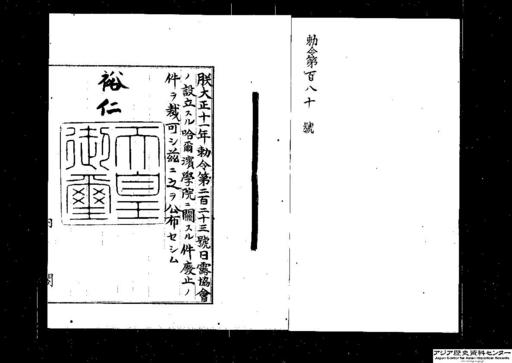 勅令第百八十號
朕大正十一年勅令第二百二十三號日露協會
ノ設立スル哈爾濱學院ニ關スル件廢止ノ
件ヲ裁可シ茲ニ之ヲ公布セシム
裕仁
天皇
御璽
内閣
アジア歴史資料センター
Japan Center for Asian Historical Records